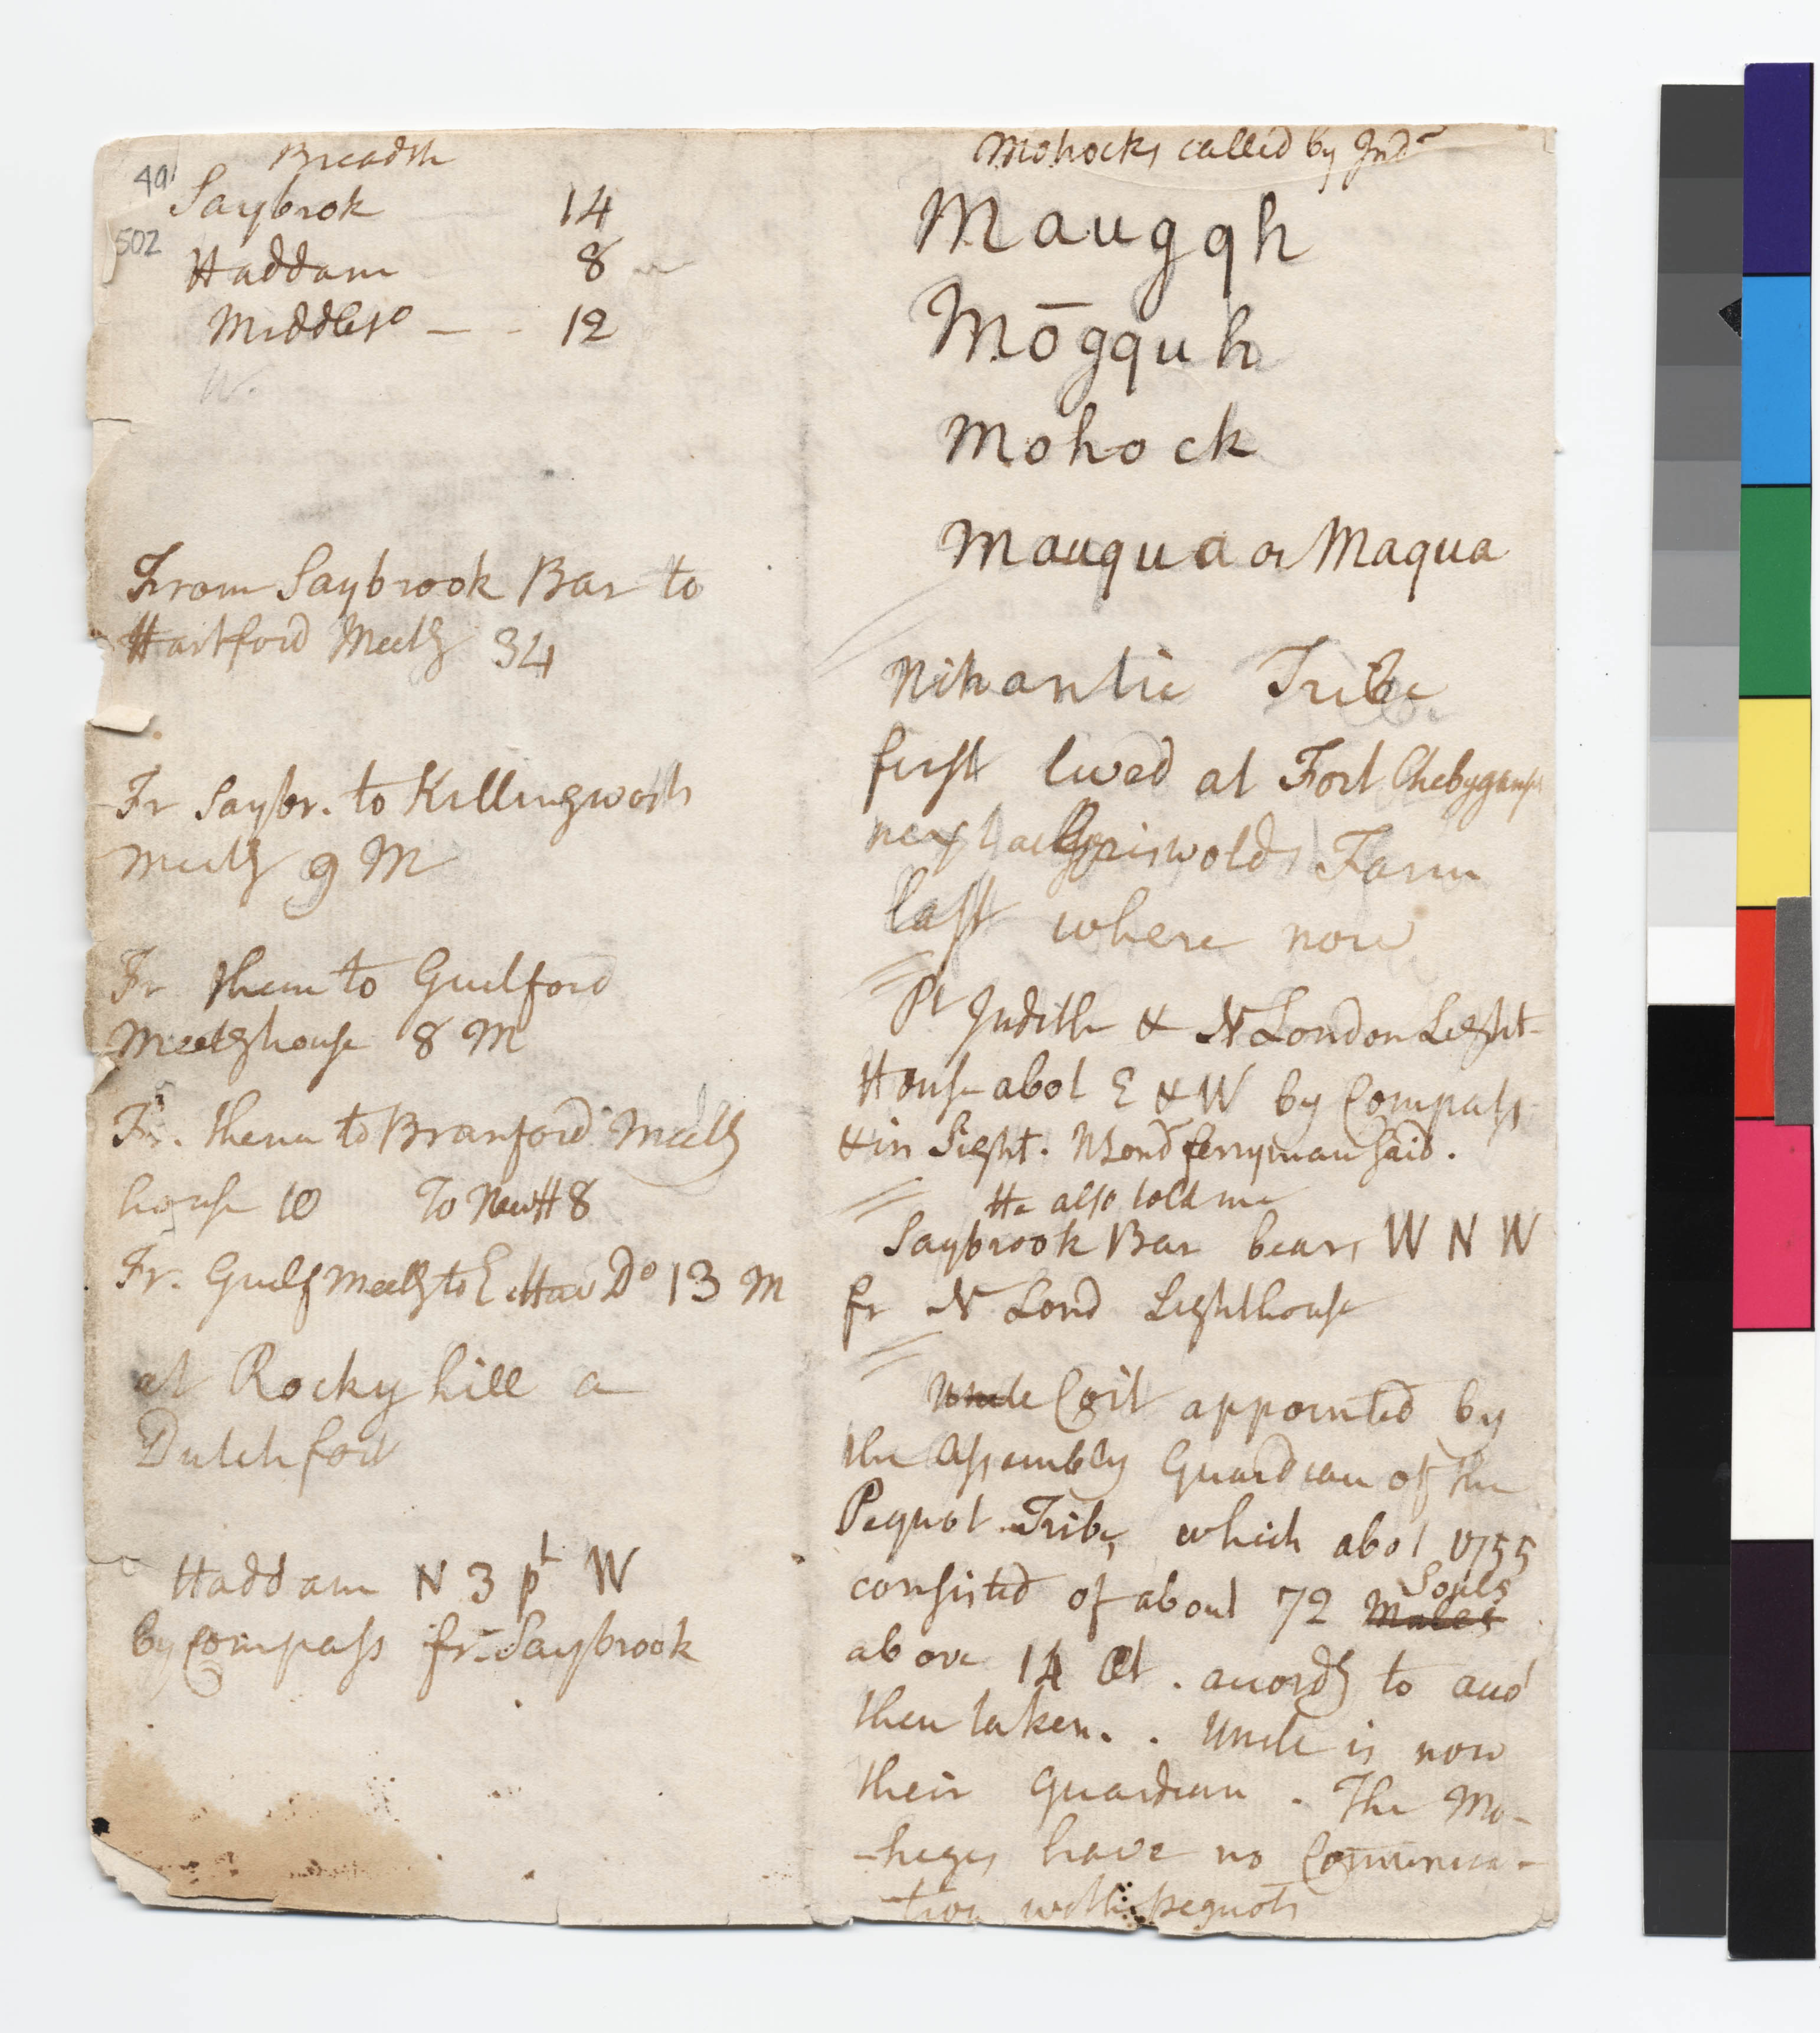 491
502
Breadth
Saybrok 14
Haddam 8
Middleto — - 12
W.
From Saybrook Bar to
Hartford Meetg 34
Fr Saybr. to Killingworth
Meetg 9 M
Fr them to Guilford
Meetghouse 8 M
Fr. thenn to Branford Meetg
house 10 To NewH 8
Fr. Guilf Meetg to E. Hav Do 13 M
at Rocky hill a
Dutch fort
Haddam N 3 pt W
by Compass fr. Saybrook
Mohocks called by Inds
Maugqh
Mōgquh
Mohock
Mauqua or Maqua
Nihantic Tribe
first lived at Fort
next at Griswolds Farm
last where now
Pt Judith & N London Light-
House abot E & W by Compass
& in Sight. NLond ferryman said.
He also told me
Saybrook Bar bears W N W
fr N Lond Lighthouse
Uncle Coit appointed by
the Assembly Guardian of the
Pequot Tribe, which abot 1755
consisted of about 72 Males Souls
above 14 Æt. accordg to
then taken. . Uncle is now
their Guardian. The Mo-
-hegs have no Communica-
tion with pequots